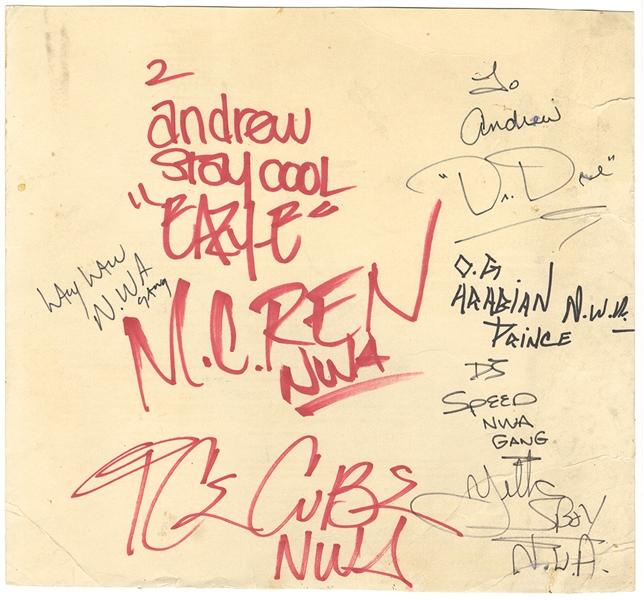 2
andrew
stay cool
"EAZY-E"
N.WA
GANG
M.C. REN
NWA
ICE CUBE
NWA
To
Andrew
"Dr. Dre"
O.G
ARABIAN N.W.A.
PRINCE
DJ
SPEED
NWA
GANG
Yella
Boy
N.W.A.